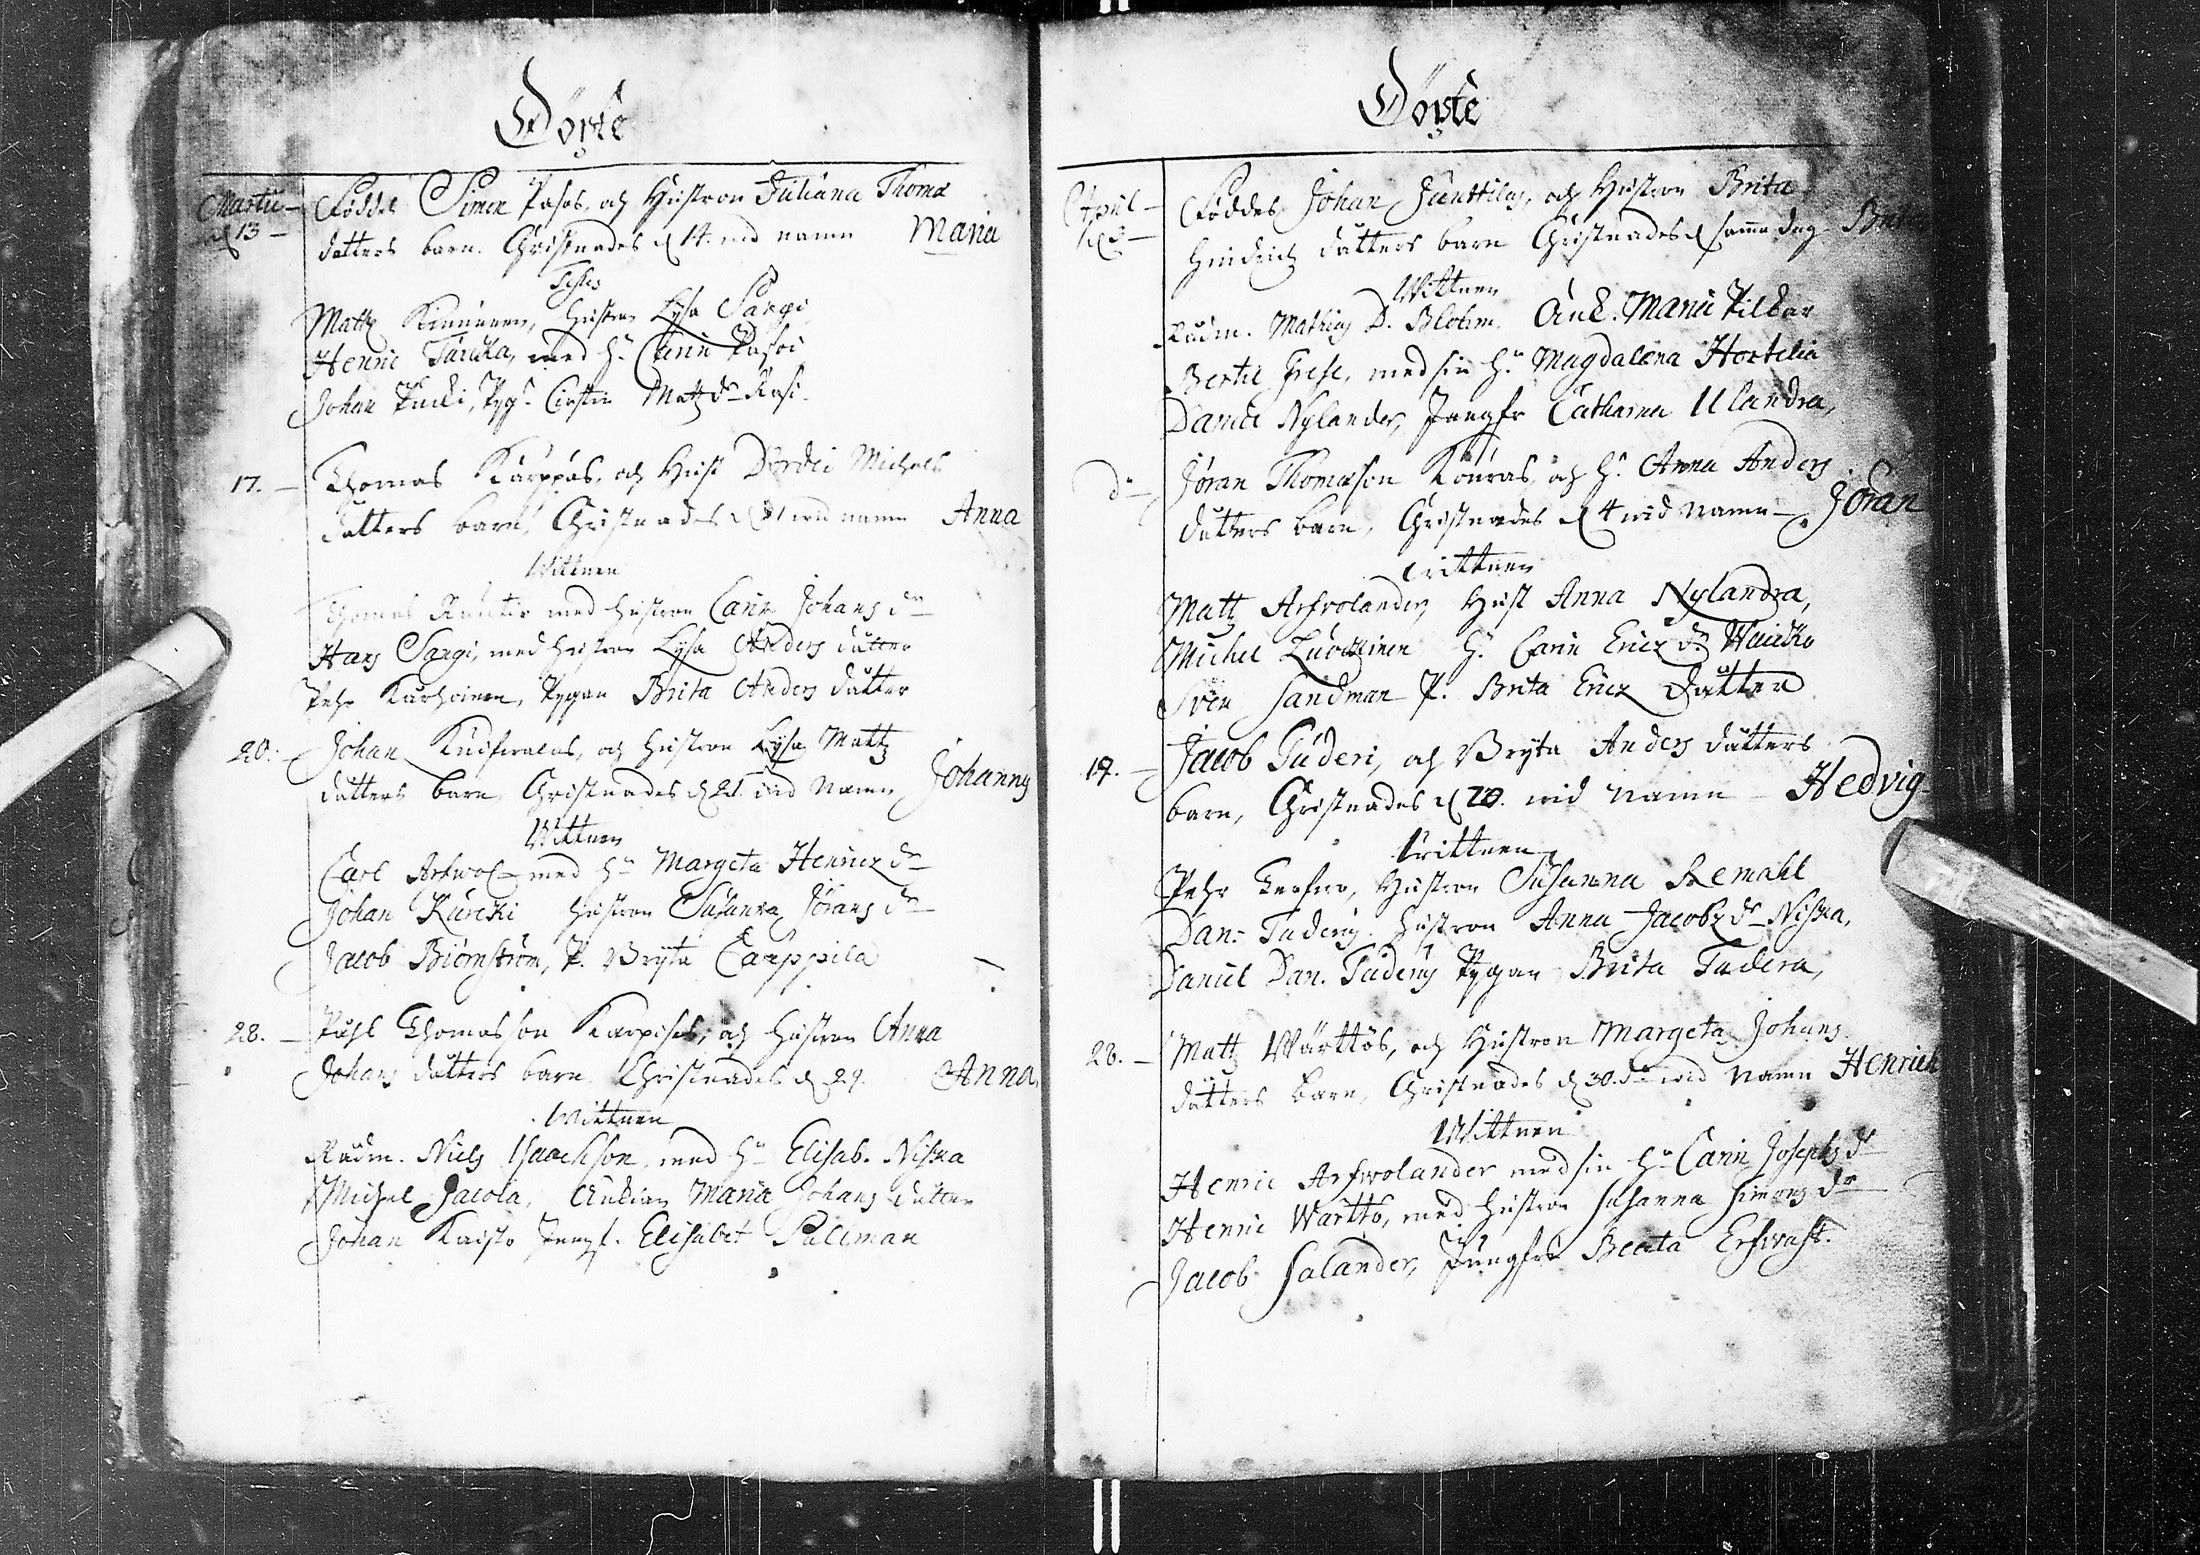 Börte
Martii 13 Föddes Simen Pasos, och Hustron Juliana Thomæ
datters barn. Christnades d 14. wid namn Maria
Testes
Matts Kinnunen, Hustro Lysa Sargi
Henric Tarukka, med H. Carin Pasoi
Johan Pucki, Pyg. Cirstin Matts dr Kasi
17. Thomas Kärppäs, och Hust Dordei Michels
datters barn, Christnades d wid namn Anna
Wittnen
Thomas med hustron Carin Johans dr
Hans Sargi, med hustron Lysa Anders datter
Pehr Karhoinen, Pygan Brita Anders datter
20. Johan och hustron Lysa Matts
datters barn Christnades d 21. wid Namn Johannes
Wittnen
Carl Arfwol med H Margeta Henricz dr
Johan Kurcki hustron Susanna Jörans dr
Jacob Biörnström, P. Bryta Carppila
28. Påhl Thomasson Karpises, och hustron Anna
Johans datters barn Christnades d 29. Anna
Wittnen
Rådm. Niels Isaachson, med H Elisab. Niska
Michel Jacola, Änkian Maria Johans datter
Johan Kaisto Jungf. Elisabet Pallman
Börte
April d 3 Föddes Johan Jänttilas, och Hustron Brita
Hindrich datters barn Christnades d samma dag Brita
Wittnen
Rådm. Mathias D. Blohm. Änk. Maria Pilkar
Bertil Frese, med sin H. Magdalena Hortelia
Daniel Nylander, Jungfr Catharina Ulandra,
do Jöran Thomæson Kouras, och H. Anna Anders
datters barn, Christnades d 4 wid namn Jöran
Wittnen
Matts Arfwolander, Hust Anna Nylandra,
Michel Luockinen H. Carin Ericz dr Waicko
Sven Sandman P. Brita Ericz datter
19. Jacob Tuderi, och Bryta Anders datters
barn, Christnades d 20. wid namn Hedvig
Wittnen
Pehr Hustron Susanna Remahl
Dan: Tuderus hustron Anna Jacobz dr Niska,
Daniel Dan. Tuderus Pygan Brita Tudera,
28. Matts Wärttös, och Hustron Margeta Johans
datters barn, Christnades d 30. do wid Namn Henrich
Wittnen
Henric Arfwolander med sin H Carin Josephs dr
Henric Wärttö, med hustron Susanna Simons dr
Jacob Salander, Jungfru Beata Erfwast.